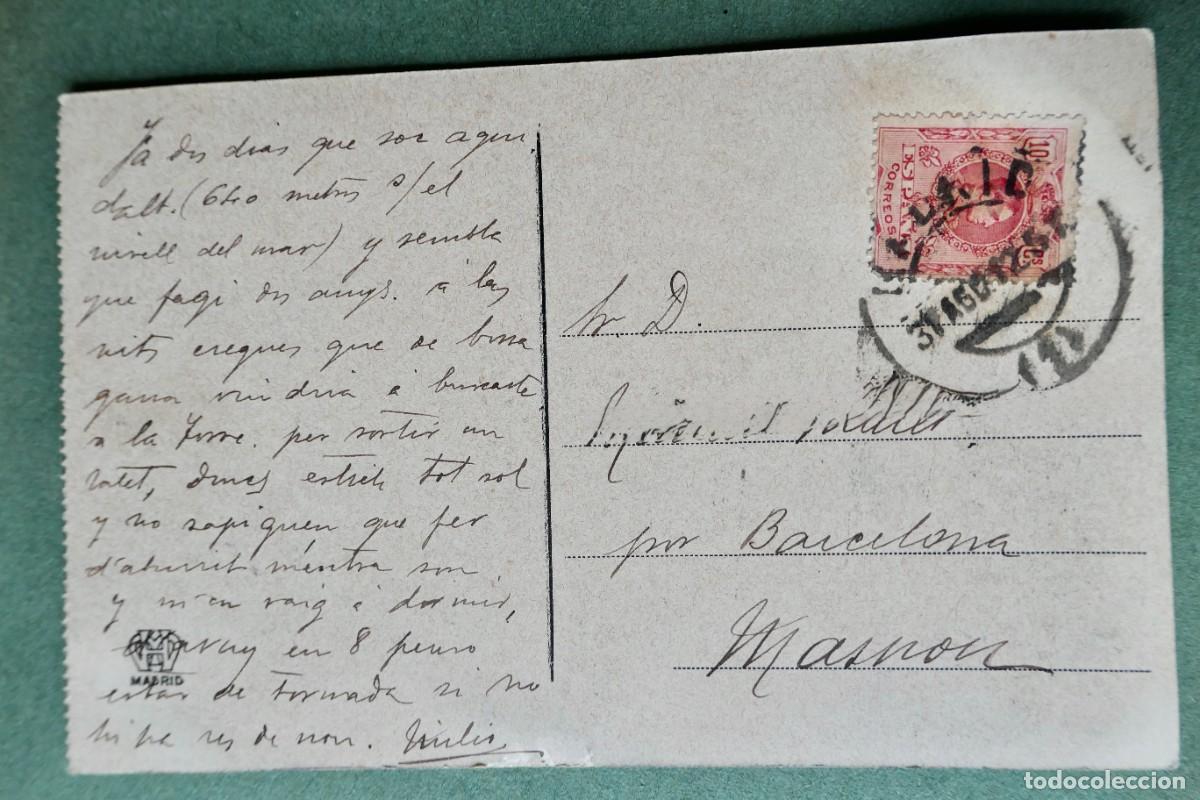 Ja dos dias que soc aquí
dalt. (640 metres s/ el
nivell del mar) y sembla
que fagi dos anys. á las
nits cregues que de bona
gana vindria á buscarte
a la Torre per sortir un
ratet, donchs estich tot sol
y no sapiguen que fer
d'aburrit méntra son
y m'en vaig á dormir,
avuy en 8 penso
estar de tornada si no
hi ha res de nou. Emilio
MADRID
ESPAÑA
CORREOS
10
Cs
31 AGO 12
(1)
Sr. D.
por Barcelona
Masnou
todocoleccion